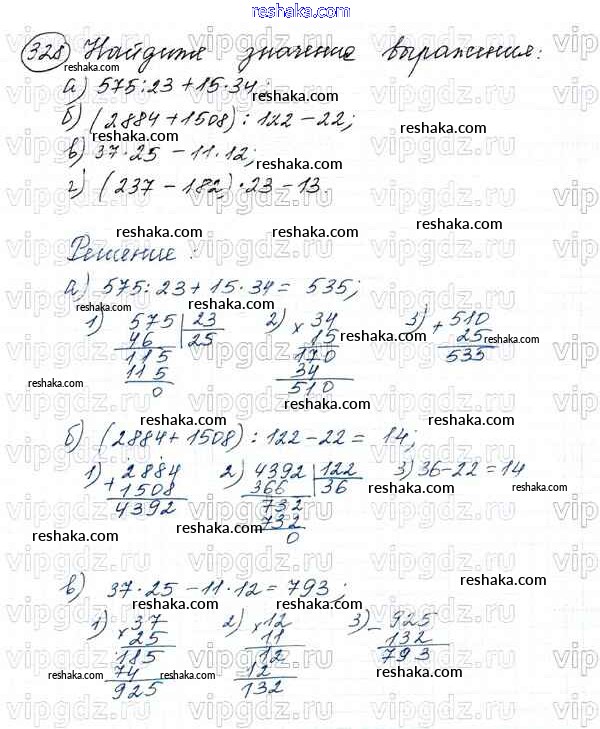 reshaka.com
328 Найдите значение выражения:
а) 575:23+15·34;
б) (2884+1508):122-22;
в) 37·25-11·12;
г) (237-182)·23-13.
Решение:
а) 575:23+15·34=535;
1) 575 23 2) 34 3) 510
46 25 × 15 + 25
115 170 535
115 34
0 510
б) (2884+1508):122-22=14;
1) 2884 2) 4392 122 3) 36-22=14
+1508 366 36
4392 732
732
0
в) 37·25-11·12=793;
1) 37 2) 12 3) 925
× 25 × 11 - 132
185 12 793
74 12
925 132